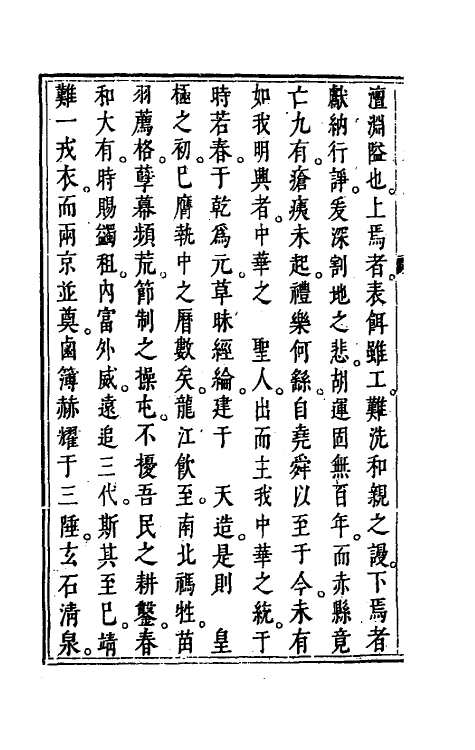 澶淵隘也。上焉者。表餌雖工。難洗和親之謾。下焉者
獻納行諍。爰深割地之悲。胡運固無百年。而赤縣竟
亡九有。瘡痍未起。禮樂何繇。自堯舜以至于今。未有
如我明興者。中華之 聖人。出而主我中華之統。于
時若春。于乾爲元。草昧經綸。建于 天造。是則 皇
極之初。已膺執中之曆數矣。龍江飲至。南北禡牲。苗
羽薦格。孽幕頻荒。節制之操。屯不擾吾民之耕鑿。春
和大有。時賜蠲租。內富外威。遠追三代。斯其至已。靖
難一戎衣。而兩京並奠。鹵簿赫耀于三陲。玄石清泉。